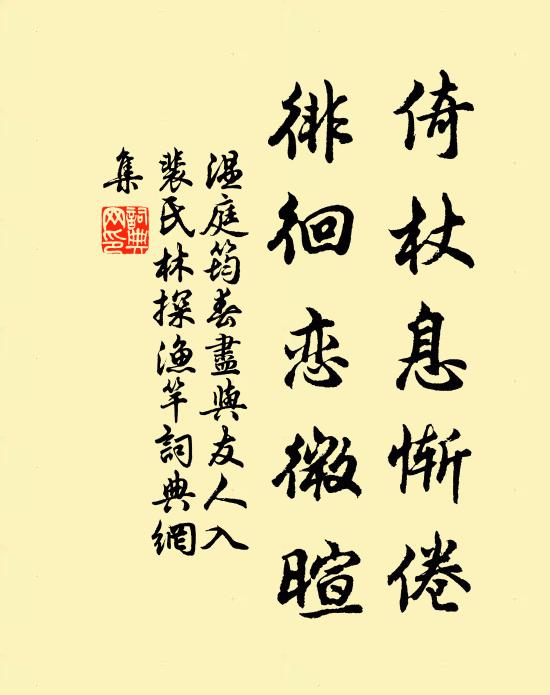 倚杖息惭倦
徘徊恋微暄
温庭筠春盡與友人入
裴氏林探漁竿詞典網
集
詞典网印